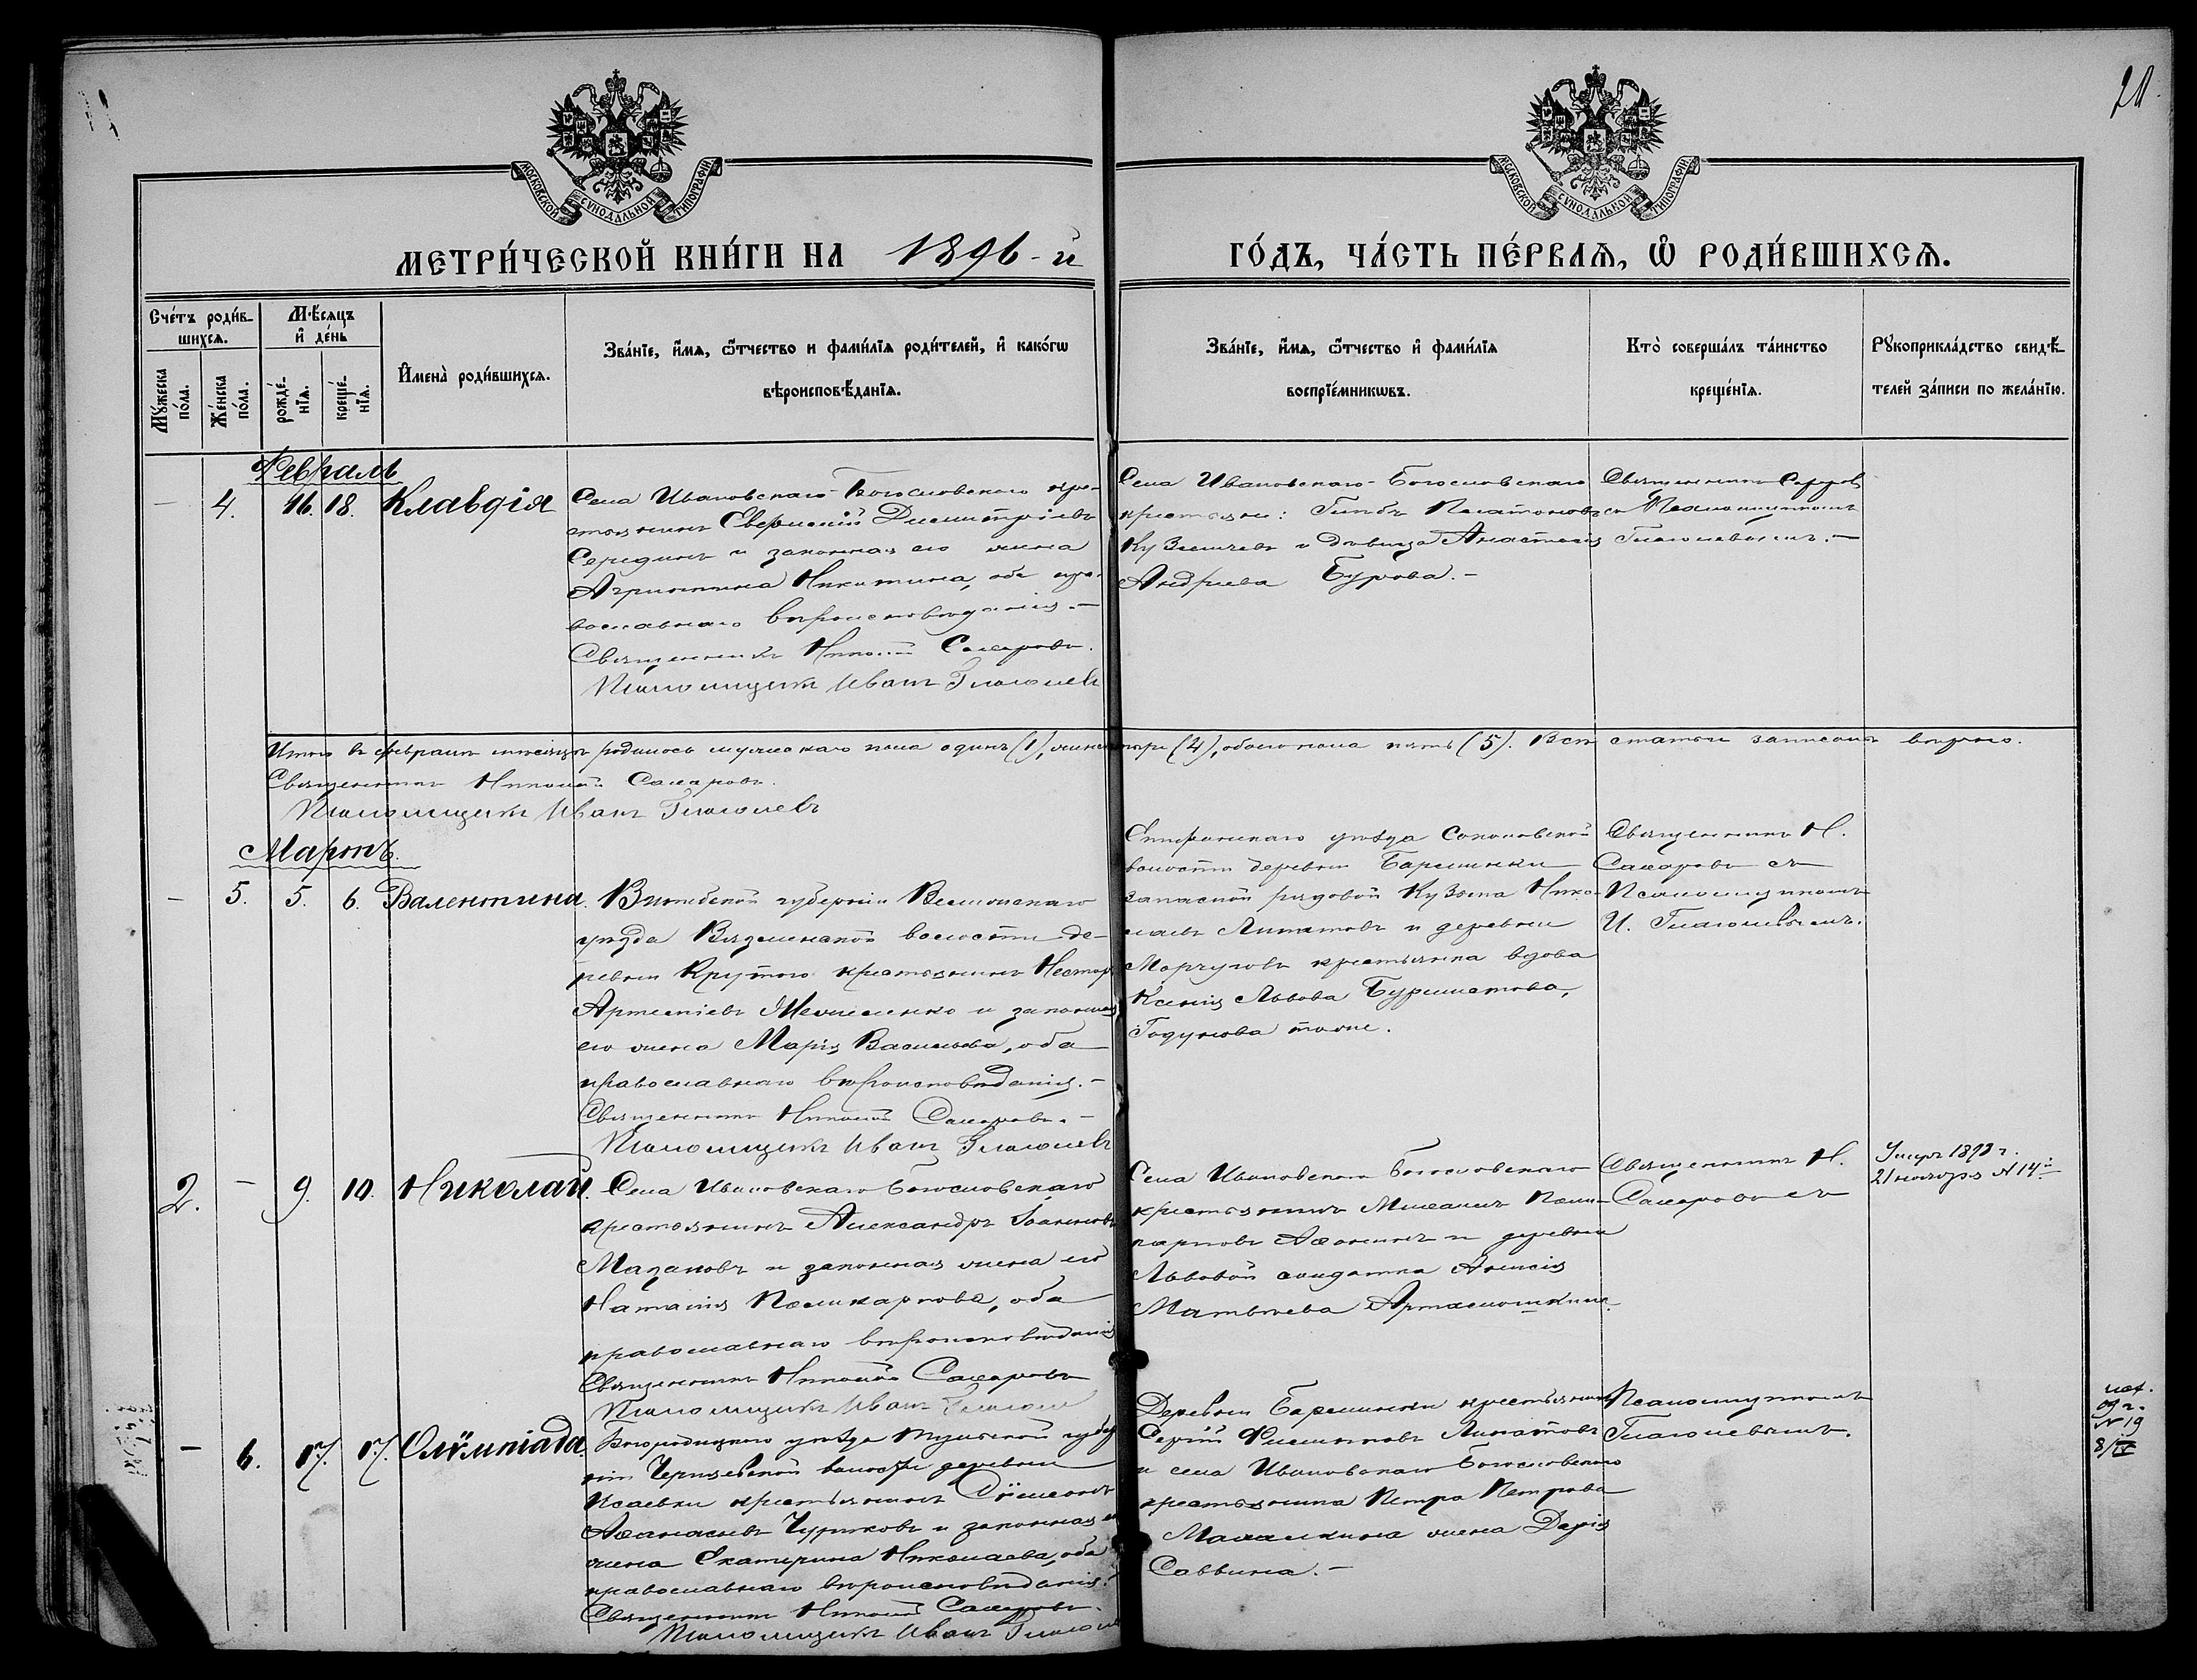 21.
МОСКОВСКОЙ СѴНОДАЛЬНОЙ ТИПОГРАФІИ
МОСКОВСКОЙ СѴНОДАЛЬНОЙ ТИПОГРАФІИ
МЕТРИ́ЧЕСКОЙ КНИ́ГИ НА 1896-й ГО́ДЪ, ЧА́СТЬ ПЕ́РВАѦ, Ѡ҆ РОДИ́ВШИХСѦ.
Сче́тъ роди́в-
шихсѧ.
Мꙋ́жеска по́ла.
Же́нска по́ла.
Мѣ́сѧцъ
и҆ де́нь
рожде́-
нїѧ.
креще́-
нїѧ.
И҆мена̀ роди́вшихсѧ.
Зва́нїе, и҆́мѧ, ѻ҆́тчество и фами́лїѧ роди́телей, и҆ како́гѡ
вѣроисповѣ́данїѧ.
Зва́нїе, и҆́мѧ, ѻ҆́тчество и҆ фами́лїѧ
воспрїе́мникѡвъ.
Кто̀ соверша́лъ та́инство
креще́нїѧ.
Рꙋкоприкла́дство свидѣ́-
телей за́писи по жела́нїю.
Февраль
— 4. 16. 18. Клавдія
Села Ивановскаго-Богословскаго кре-
стьянинъ Евгеній Димитріевъ
Серединъ и законная его жена
Агриппина Никитина, оба пра-
вославнаго вѣроисповѣданія.—
Священникъ Николай Сахаровъ.
Псаломщикъ Иванъ Глаголевъ
Села Ивановскаго-Богословскаго
крестьяне: Глѣбъ Платоновъ
Кузмичевъ и дѣвица Анастасія
Андреева Бурова.—
Священникъ Сахаровъ
съ Псаломщикомъ
Глаголевымъ.—
Итого въ февралѣ мѣсяцѣ родилось мужескаго пола одинъ (1), женск. четыре (4), обоего пола пять (5). Всѣ статьи записаны вѣрно.
Священникъ Николай Сахаровъ.
Псаломщикъ Иванъ Глаголевъ
Мартъ.
— 5. 5. 6. Валентина.
Витебской губерніи Велижскаго
уѣзда Вязменской волости де-
ревни Крутого крестьянинъ Несторъ
Артеміевъ и законная
его жена Марія Васильева, оба
православнаго вѣроисповѣданія.—
Священникъ Николай Сахаровъ.—
Псаломщикъ Иванъ Глаголевъ
Епифанскаго уѣзда Соколовской
волости деревни Бармынки
запасной рядовой Кузьма Нико-
лаевъ Липатовъ и деревни
крестьянка вдова
Ксенія Львова Бурмистова,
Годунова тоже.
Священникъ Н.
Сахаровъ съ
Псаломщикомъ
И. Глаголевымъ.
2. — 9. 10. Николай.
Села Ивановскаго Богословскаго
крестьянинъ Александръ Іоанновъ
Мазаковъ и законная жена его
Наталія Поликарпова, оба
православнаго вѣроисповѣданія
Священникъ Николай Сахаровъ
Псаломщикъ Иванъ Глаголевъ
Села Ивановскаго Богословскаго
крестьянинъ Михаилъ Поли-
карповъ Аѳонинъ и деревни
Львовой солдатка Анисія
Матвѣева
Священникъ Н.
Сахаровъ съ
Умеръ 1898 г.
21 ноября № 14й
— 6. 17. 17. Олѵмпіада.
Богородицкаго уѣзда Тульской губер-
ніи волости деревни
Исаевки крестьянинъ Сѵмеонъ
Аѳанасьевъ Чуриковъ и законная его
жена Екатерина Николаева, оба
православнаго вѣроисповѣданія.
Священникъ Николай Сахаровъ.
Псаломщикъ Иванъ Глаголевъ
Деревни Бармынки крестьянинъ
Сергій Филипповъ Липатовъ
и села Ивановскаго Богословскаго
крестьянина Петра Петрова
жена Дарія
Саввина.—
Псаломщикомъ
Глаголевымъ.
09 г.
№ 19
8/IV